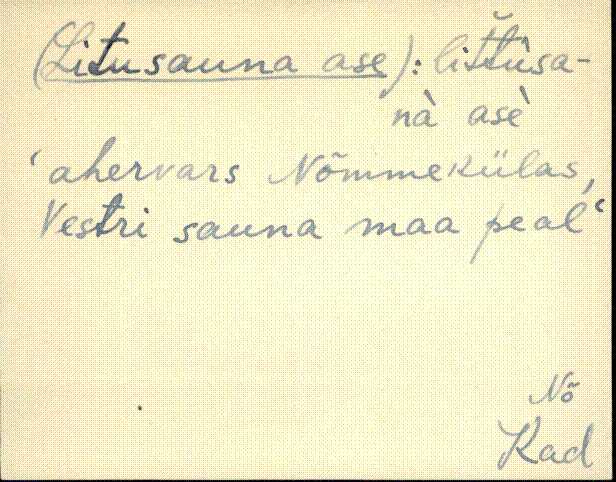 (Litusauna ase): lit̆t̆ùsa-
nà asè
‘ahervars Nõmmekülas,
Vestri sauna maa peal‘
Nõ
Kad